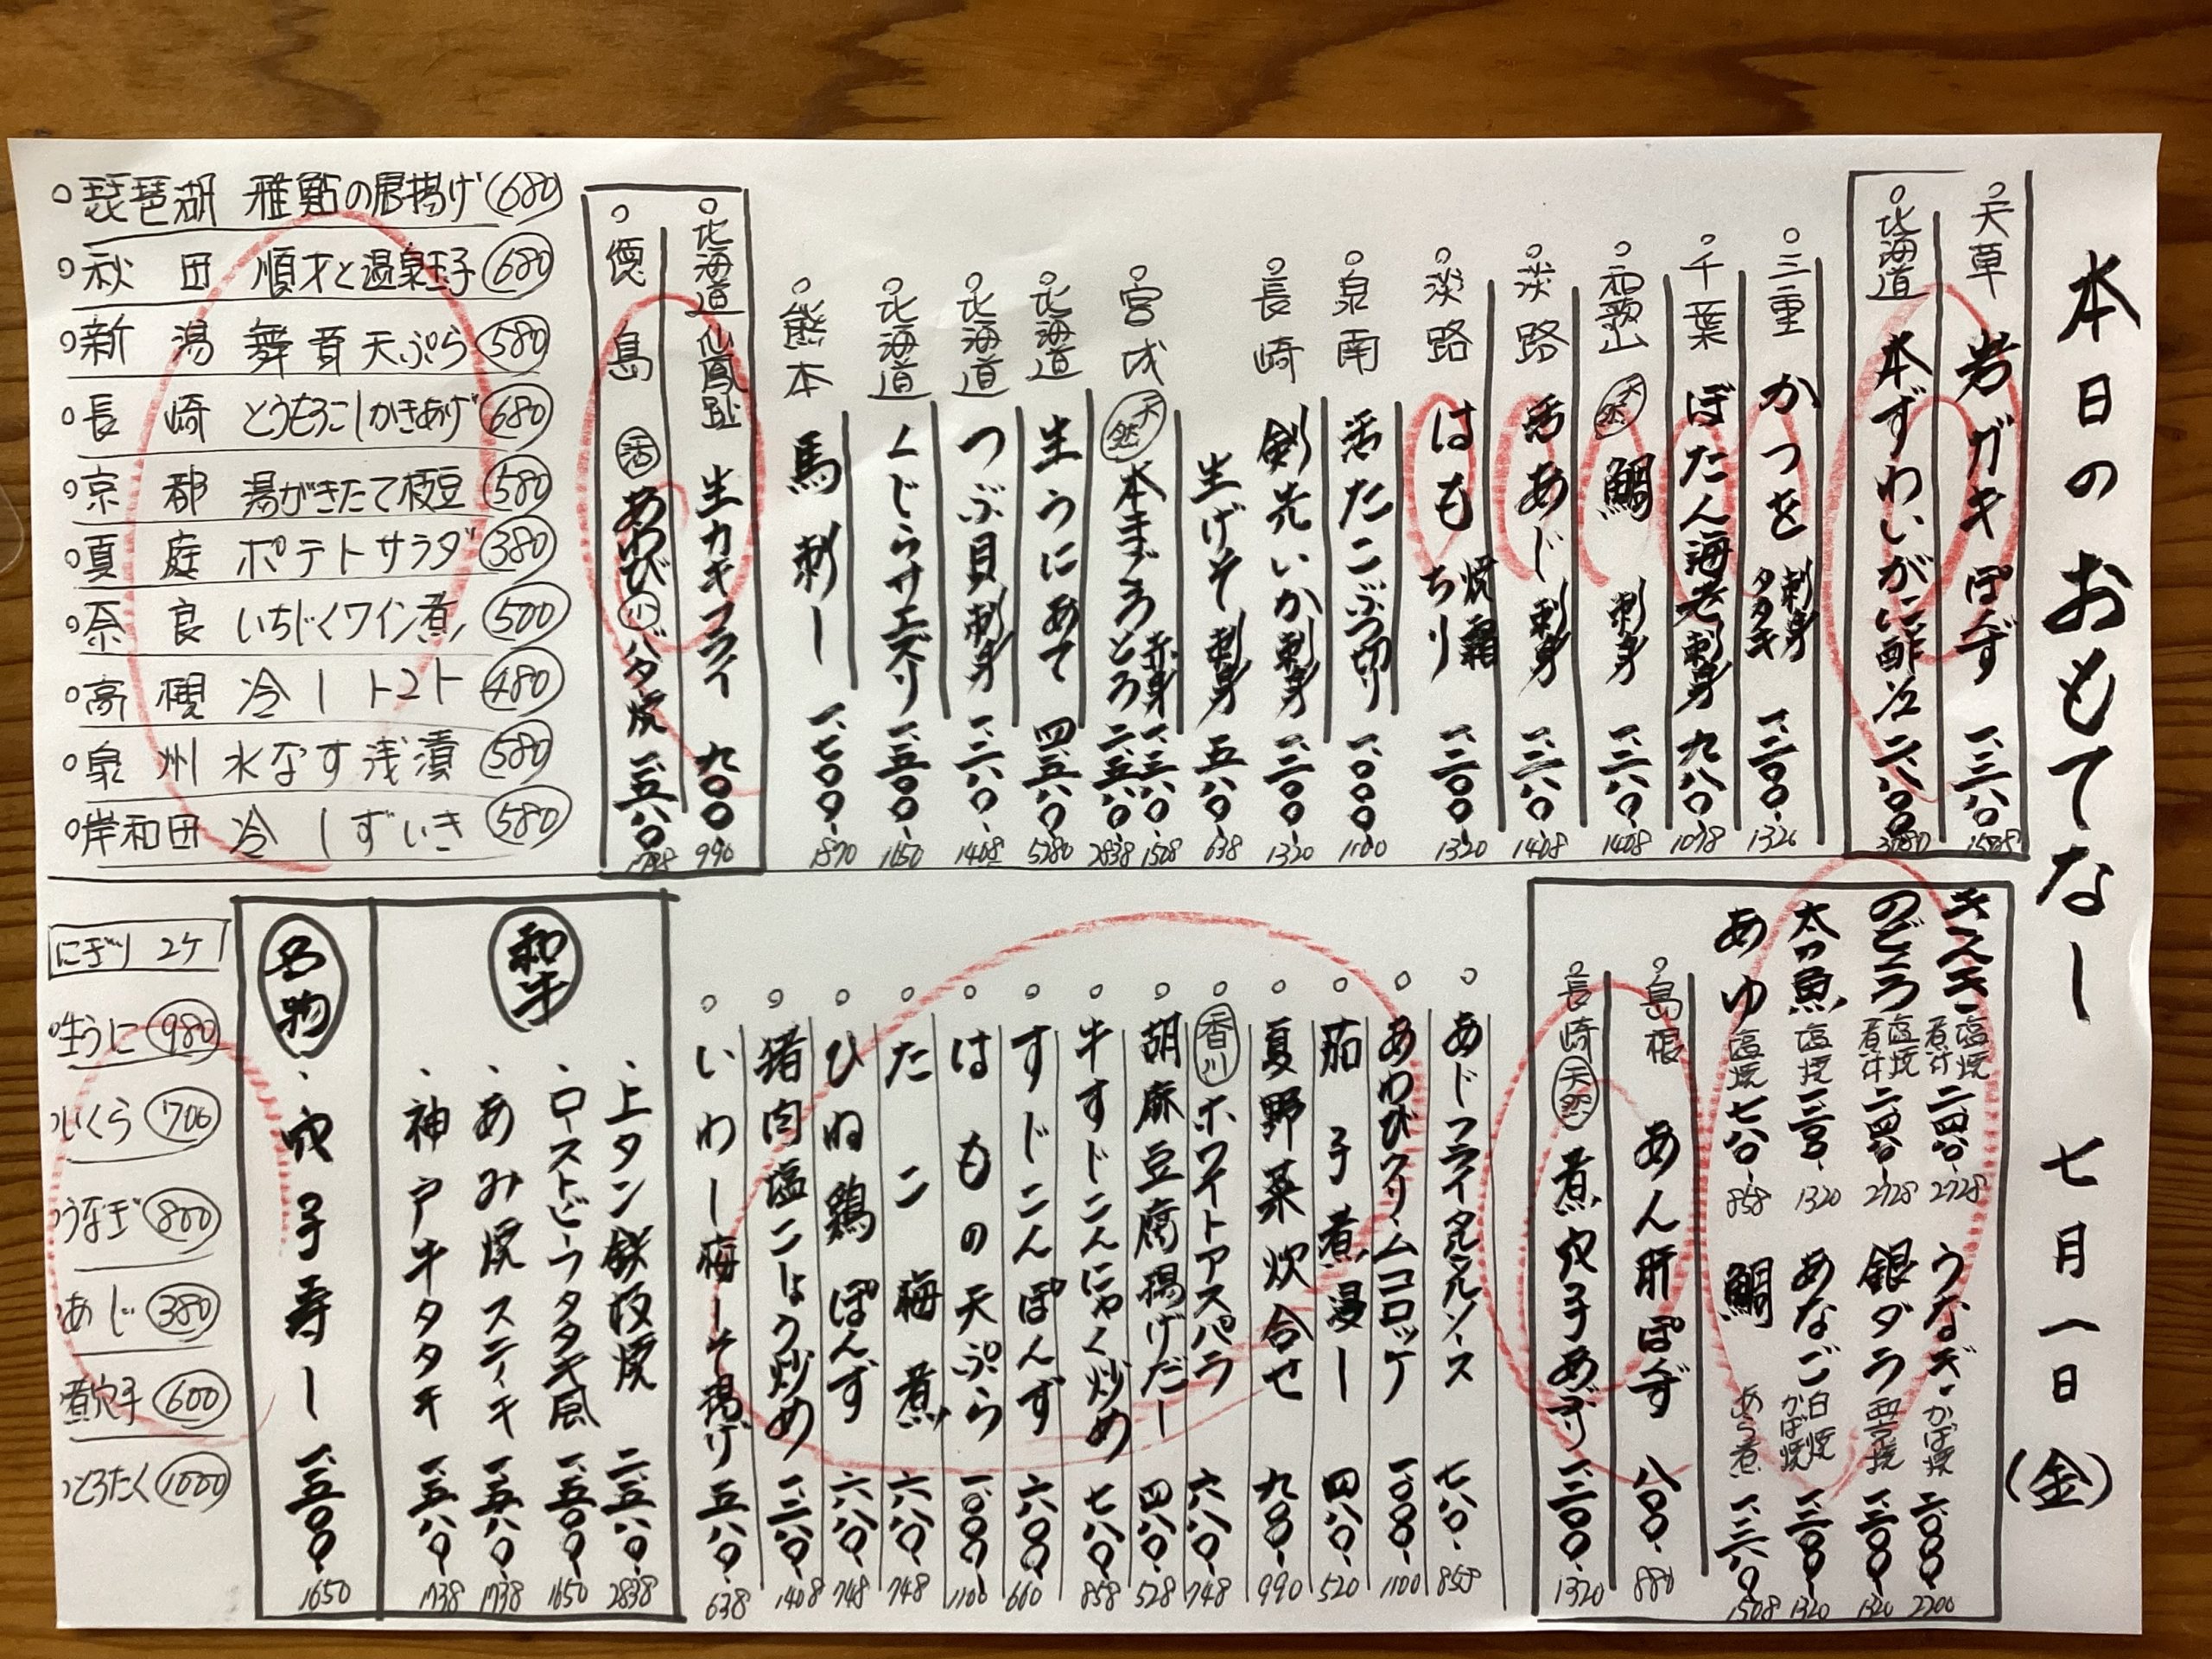 本日のおもてなし 七月一日(金)
天草 岩ガキぽんず 一、三八〇 1508
北海道 本ずわいがに酢 二、八〇〇 3080
三重 かつを 刺身 タタキ 一、二〇〇 1320
千葉 ぼたん海老刺身 九八〇 1078
和歌山 天然 鯛 刺身 一、二八〇 1408
淡路 活あじ刺身 一、二八〇 1408
淡路 はも 焼霜 ちり 一、二〇〇 1320
泉南 活たこぶつ切り 一、〇〇〇 1100
長崎 剣先いか刺身 一、二〇〇 1320
生げそ刺身 五八〇 638
宮城 天然 本まぐろ 赤身 一、三八〇 1508
とろ 二、五八〇 2838
北海道 生うにあて 四、八〇〇 5280
北海道 つぶ貝刺身 一、二八〇 1408
北海道 くじらサエズリ 一、五〇〇 1650
熊本 馬刺し 一、七〇〇 1870
北海道仙鳳趾 生カキフライ 九〇〇 990
徳島 活 あわび 小 バタ焼 一、五八〇 1738
琵琶湖 稚鮎の唐揚げ 680
秋田 順才と温泉玉子 680
新潟 舞茸天ぷら 580
長崎 とうもろこしかきあげ 680
京都 湯がきたて枝豆 580
夏庭 ポテトサラダ 380
奈良 いちじくワイン煮 500
高槻 冷しトマト 480
泉州 水なす浅漬 580
岸和田 冷しずいき 580
キンキ 塩焼 煮付 二、四八〇 2728
のどぐろ 塩焼 煮付 二、四八〇 2728
太刀魚 塩焼 一、二〇〇 1320
あゆ 塩焼 七八〇 858
うなぎ かば焼 二、〇〇〇 2200
銀ダラ 西京焼 一、二〇〇 1320
あなご 白焼 かば焼 一、二〇〇 1320
鯛 あら煮 一、三八〇 1508
島根 あん肝ぽんず 八〇〇 880
長崎 天然 煮穴子あぶり 一、二〇〇 1320
あじフライタルタルソース 七八〇 858
あわびクリームコロッケ 一、〇〇〇 1100
茄子煮浸し 四八〇 520
夏野菜炊合せ 九〇〇 990
香川 ホワイトアスパラ 六八〇 748
胡麻豆腐揚げだし 四八〇 528
牛すじこんにゃく炒め 七八〇 858
すじこんぽんず 六〇〇 660
はもの天ぷら 一、〇〇〇 1100
たこ梅煮 六八〇 748
ひね鶏ぽんず 六八〇 748
猪肉塩こしょう炒め 一、二八〇 1408
いわし梅しそ揚げ 五八〇 638
和牛
上タン鉄板焼 二、五八〇 2838
ローストビーフタタキ風 一、五〇〇 1650
あみ焼ステーキ 一、五八〇 1738
神戸牛タタキ 一、五八〇 1738
名物
穴子寿し 一、五〇〇 1650
にぎり 2ケ
生うに 980
いくら 700
うなぎ 800
あじ 380
煮穴子 600
とろたく 1000